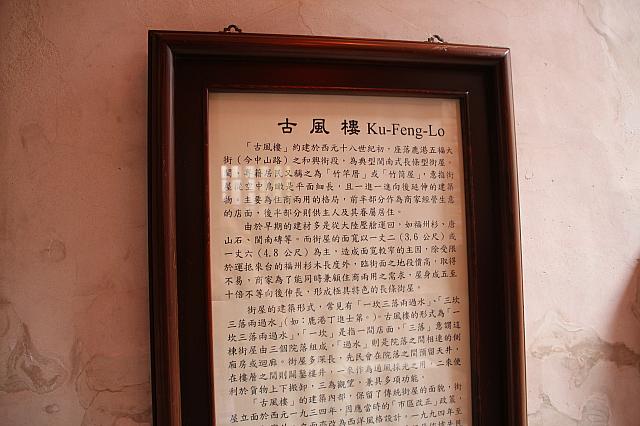 古風樓 Ku-Feng-Lo
「古風樓」約建於西元十八世紀初，座落鹿港五福大
街（今中山路）之和興街段，為典型閩南式長條型街屋。
籍居民又稱之為「竹竿厝」或「竹筒屋」，意指街
屋從空中鳥瞰是平面細長，且一進一進向後延伸的建築
物。主要為住商兩用的格局，前半部分作為商家經營生意
的店面，後半部分則供主人及其眷屬居住。
由於早期的建材多是從大陸壓艙運回，如福州杉、唐
山石、閩南磚等。而街屋的面寬以一丈二（3.6 公尺）或
一丈六（4.8 公尺）為主，造成面寬較窄的主因，除受限
於運抵來台的福州杉木長度外，臨街面之地段價高，取得
不易，商家為了能同時兼顧住商兩用之需求，屋身成五至
十倍不等向後伸長，形成極具特色的長條街屋。
街屋的建築形式，常見有「一坎三落兩過水」、「三坎
三落兩過水」（如：鹿港丁進士第。）。古風樓的形式為「一
坎三落兩過水」，「一坎」是指一間店面，「三落」意謂這
棟街屋由三個院落組成，「過水」則是院落之間相連的側
廂房或迴廊。街屋多深長，先民會在院落之間預留天井，
在樓層之間則闢鑿樓井，一來作為通風採光之用，二來便
利於貨物上下搬卸，三為觀望，兼具多項功能。
「古風樓」的建築內部，保留了傳統街屋的面貌，街
屋立面於西元一九三四年，因應當時的「市區改正」政策，
改為西洋風格設計。一九九四年至